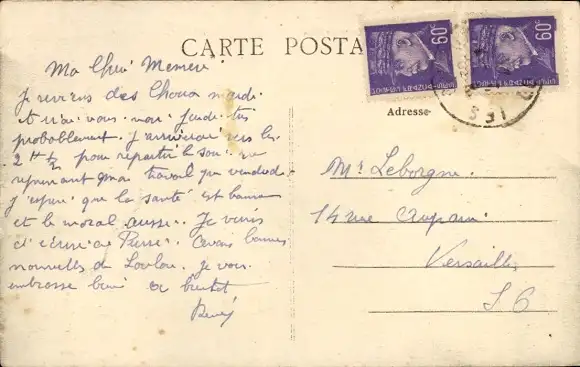 CARTE POSTA
60c
60c
Adresse
Ma Mémère
Je reviens des mardi
et vous jeudi très
probablement. J'arriverai vers les
2 H ½ pour repartir le soir ne
reprenant mon travail que vendredi
j'espère que la santé est bonne
et le moral aussi. Je viens
d'écrire à Pierre. Avons bonnes
nouvelles de Loulou. Je vous
embrasse bien à bientôt
René
Mr Leborgne
14 rue
Versailles
S. O